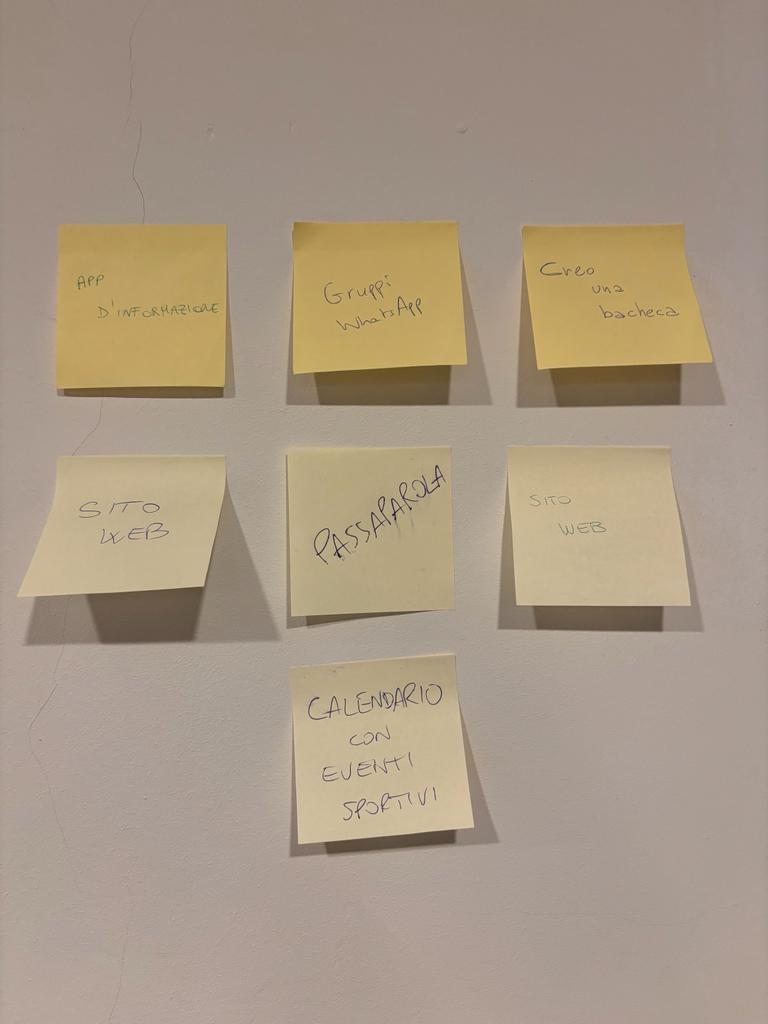 APP
D'INFORMAZIONE
Gruppi
WhatsApp
Creo
una
bacheca
SITO
WEB
PASSAPAROLA
SITO
WEB
CALENDARIO
CON
EVENTI
SPORTIVI